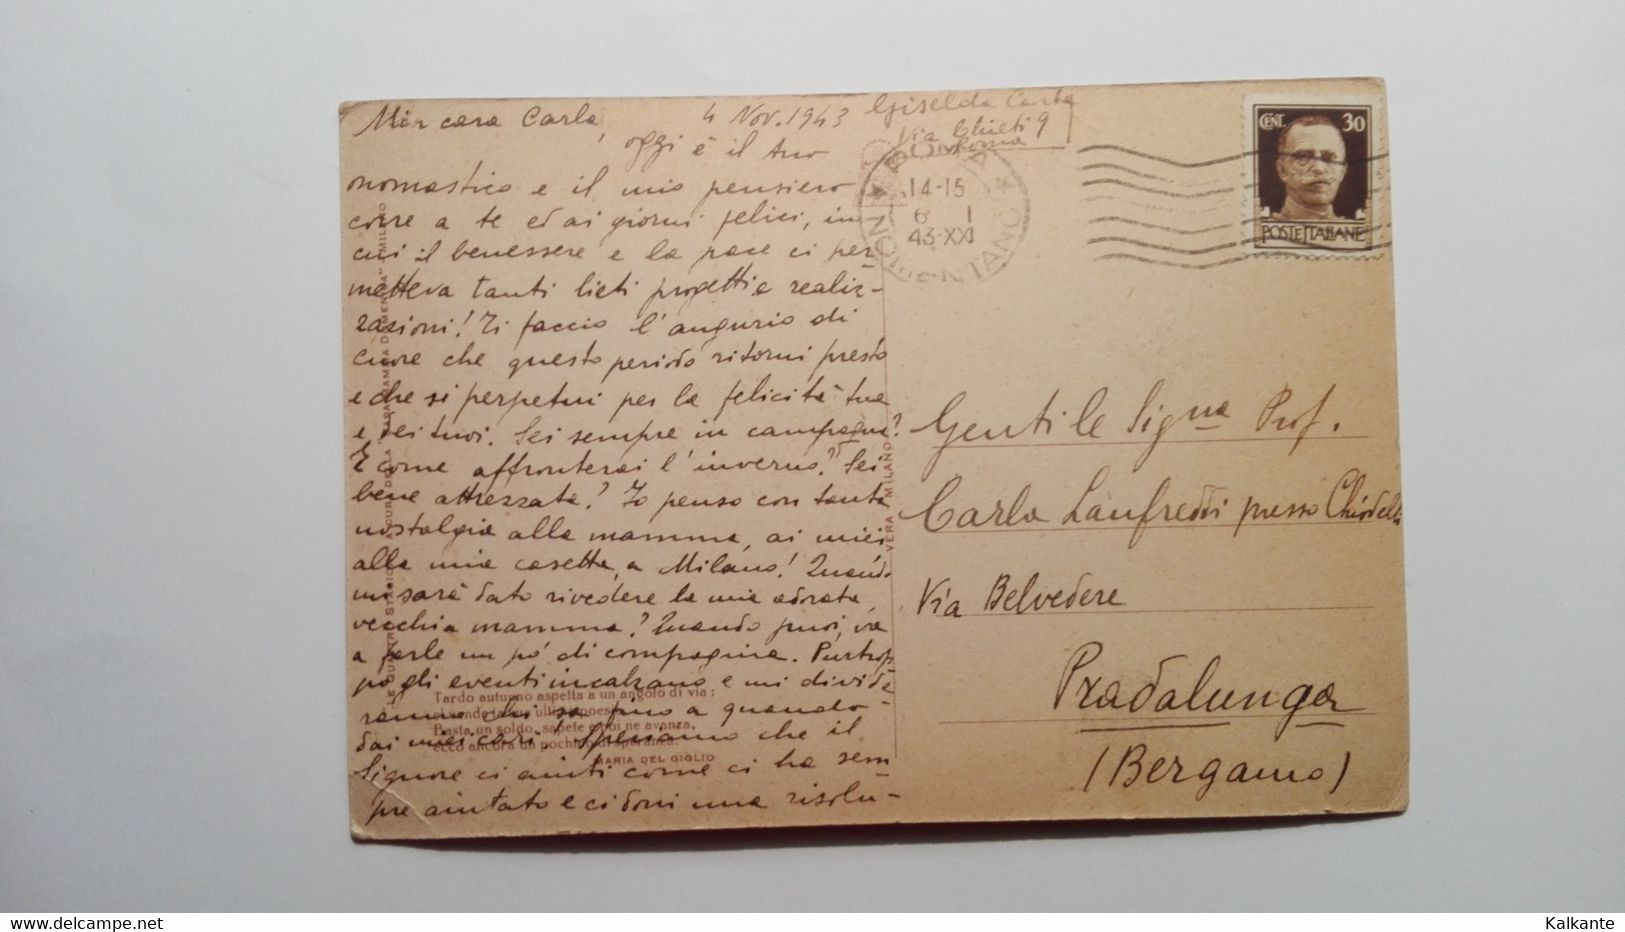 Mia cara Carla,
4 Nov. 1943
oggi è il tuo
onomastico e il mio pensiero
corre a te ed ai giorni felici, in
cui il benessere e la pace ci per-
metteva tanti lieti progetti e realiz-
zazioni! Ti faccio l'augurio di
cuore che questo periodo ritorni presto
e che si perpetui per la felicità tua
e dei tuoi. Sei sempre in campagna?
E come affronterai l'inverno? Sei
bene attrezzata? Io penso con tanta
nostalgia alla mamma, ai miei
alla mia casetta, a Milano! Quando
mi sarà dato rivedere la mia adorata,
vecchia mamma? Quando puoi, va
a farle un pò di compagnia. Purtrop-
po gli eventi incalzano e mi divide
ranno chi sa fino a quando
dai miei cari! Speriamo che il
Signore ci aiuti come ci ha sem
pre aiutato e ci doni una risolu-
Giselda Carta
Via Chieti 9
Roma
14-15
6 I
43-XXI
CENT. 30
POSTE ITALIANE
Gentile Signa Prof.
Carla Lanfreddi presso Chiodelli
Via Belvedere
Pradalunga
(Bergamo)
Tardo autunno aspetta a un angolo di via:
Basta un soldo, sapete e poi ne avanza,
ecco ancora un pochino di speranza.
MARIA DEL GIGLIO
VERA MILANO
Kalkante
www.delcampe.net
Kalkante